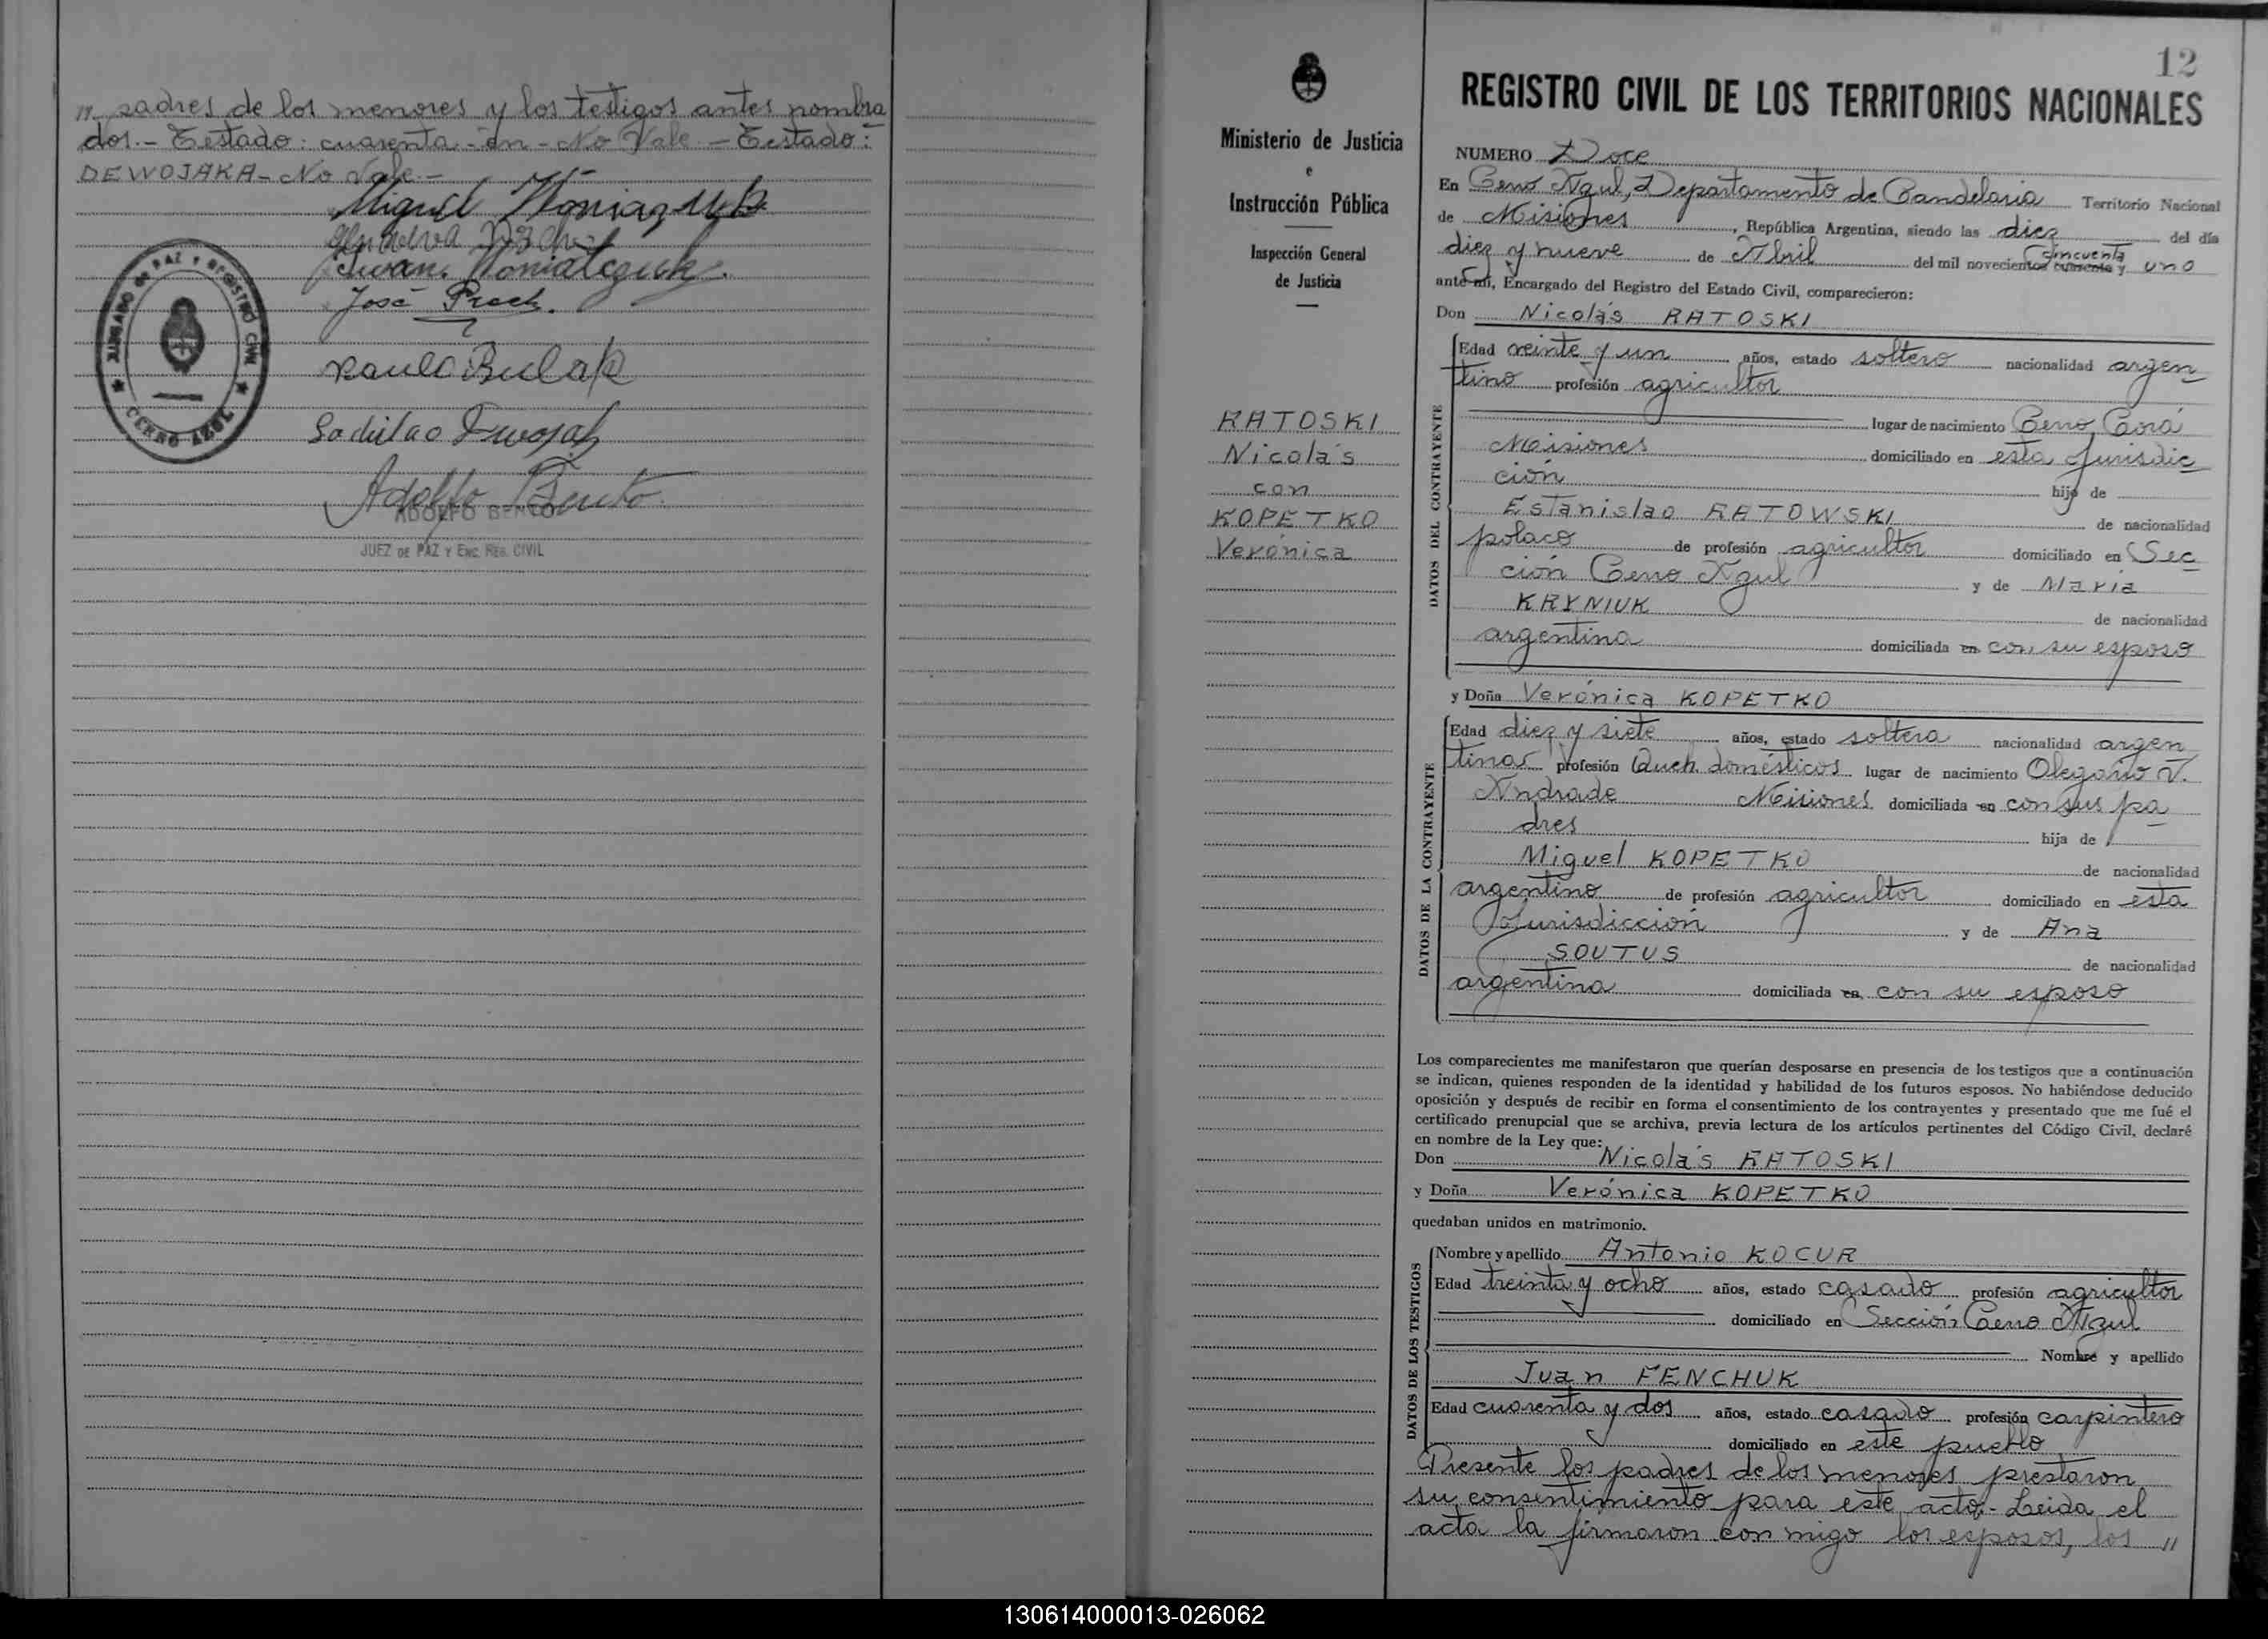 " padres de los menores y los testigos antes nombra
dos.- Testado: cuarenta-an-No Vale.-Testado:
DEWOJAKA-No Vale.-
Miguel
José Proch.
Adolfo Bento
ADOLFO BENTO
JUEZ DE PAZ Y ENC. REG. CIVIL
JUZGADO DE PAZ Y REGISTRO CIVIL
CERRO AZUL
Ministerio de Justicia
e
Instrucción Pública
Inspección General
de Justicia
RATOSKI
Nicolás
con
KOPETKO
Verónica
12
REGISTRO CIVIL DE LOS TERRITORIOS NACIONALES
NUMERO Doce
En Cerro Azul, Departamento de Candelaria Territorio Nacional
de Misiones, República Argentina, siendo las diez del día
diez y nueve de Abril del mil novecientos cuarenta y cincuenta uno
ante mí, Encargado del Registro del Estado Civil, comparecieron:
Don Nicolás RATOSKI
DATOS DEL CONTRAYENTE
Edad veinte y un años, estado soltero nacionalidad argen
tino profesión agricultor
lugar de nacimiento Cerro Corá
Misiones domiciliado en esta Jurisdic
ción hijo de
Estanislao RATOWSKI de nacionalidad
polaco de profesión agricultor domiciliado en Sec
ción Cerro Azul y de María
KRYNIUK de nacionalidad
argentina domiciliada en con su esposo
y Doña Verónica KOPETKO
DATOS DE LA CONTRAYENTE
Edad diez y siete años, estado soltera nacionalidad argen
tina profesión Queh. domésticos lugar de nacimiento Olegario V.
Andrade Misiones domiciliada en con sus pa
dres hija de
Miguel KOPETKO de nacionalidad
argentino de profesión agricultor domiciliado en esta
Jurisdicción y de Ana
SOUTUS de nacionalidad
argentina domiciliada en con su esposo
Los comparecientes me manifestaron que querían desposarse en presencia de los testigos que a continuación
se indican, quienes responden de la identidad y habilidad de los futuros esposos. No habiéndose deducido
oposición y después de recibir en forma el consentimiento de los contrayentes y presentado que me fué el
certificado prenupcial que se archiva, previa lectura de los artículos pertinentes del Código Civil, declaré
en nombre de la Ley que:
Don Nicolás RATOSKI
y Doña Verónica KOPETKO
quedaban unidos en matrimonio.
DATOS DE LOS TESTIGOS
Nombre y apellido Antonio KOCUR
Edad treinta y ocho años, estado casado profesión agricultor
domiciliado en Sección Cerro Azul
Nombre y apellido
Juan FENCHUK
Edad cuarenta y dos años, estado casado profesión carpintero
domiciliado en este pueblo
Presente los padres de los menores prestaron
su consentimiento para este acto.- Leida el
acta la firmaron con migo los esposos, los "
130614000013-026062